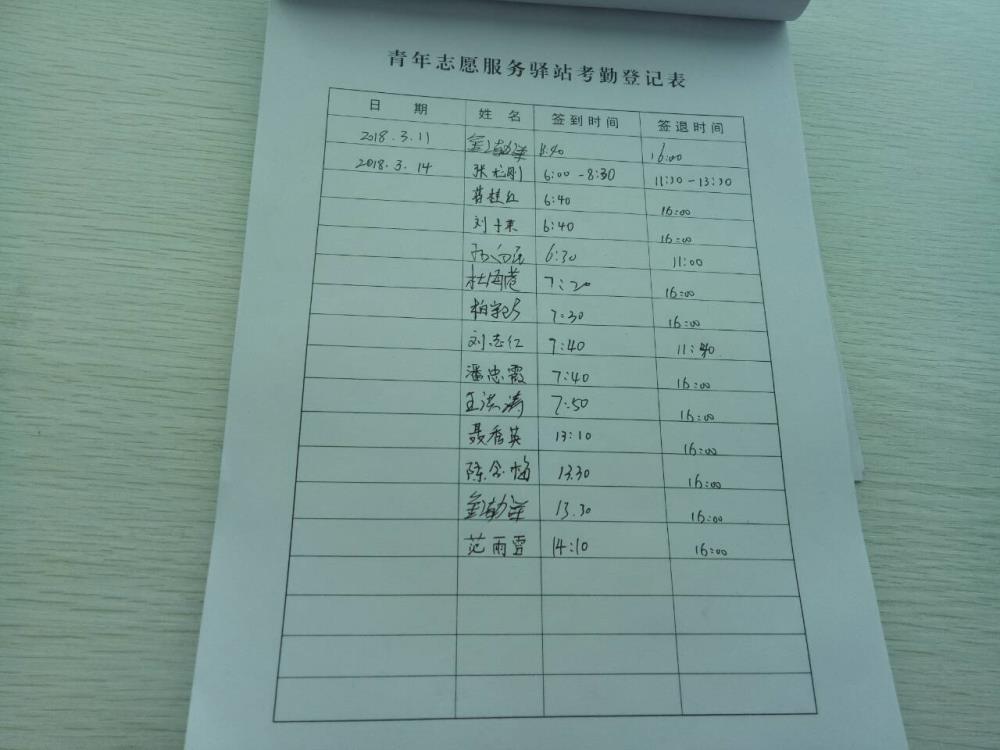 青年志愿服务驿站考勤登记表
日 期 姓 名 签到时间 签退时间
2018.3.11 16:00
2018.3.14 张 刚 6:00-8:30 11:30-13:30
桂红 6:40 16:00
刘 6:40 16:00
6:30 11:00
杜海 7:20 16:00
柏 7:30 16:00
刘志红 7:40 11:40
潘忠霞 7:40 16:00
王洪涛 7:50 16:00
聂香英 13:10 16:00
陈 梅 13.30 16:00
13.30 16:00
范雨雪 14:10 16:00